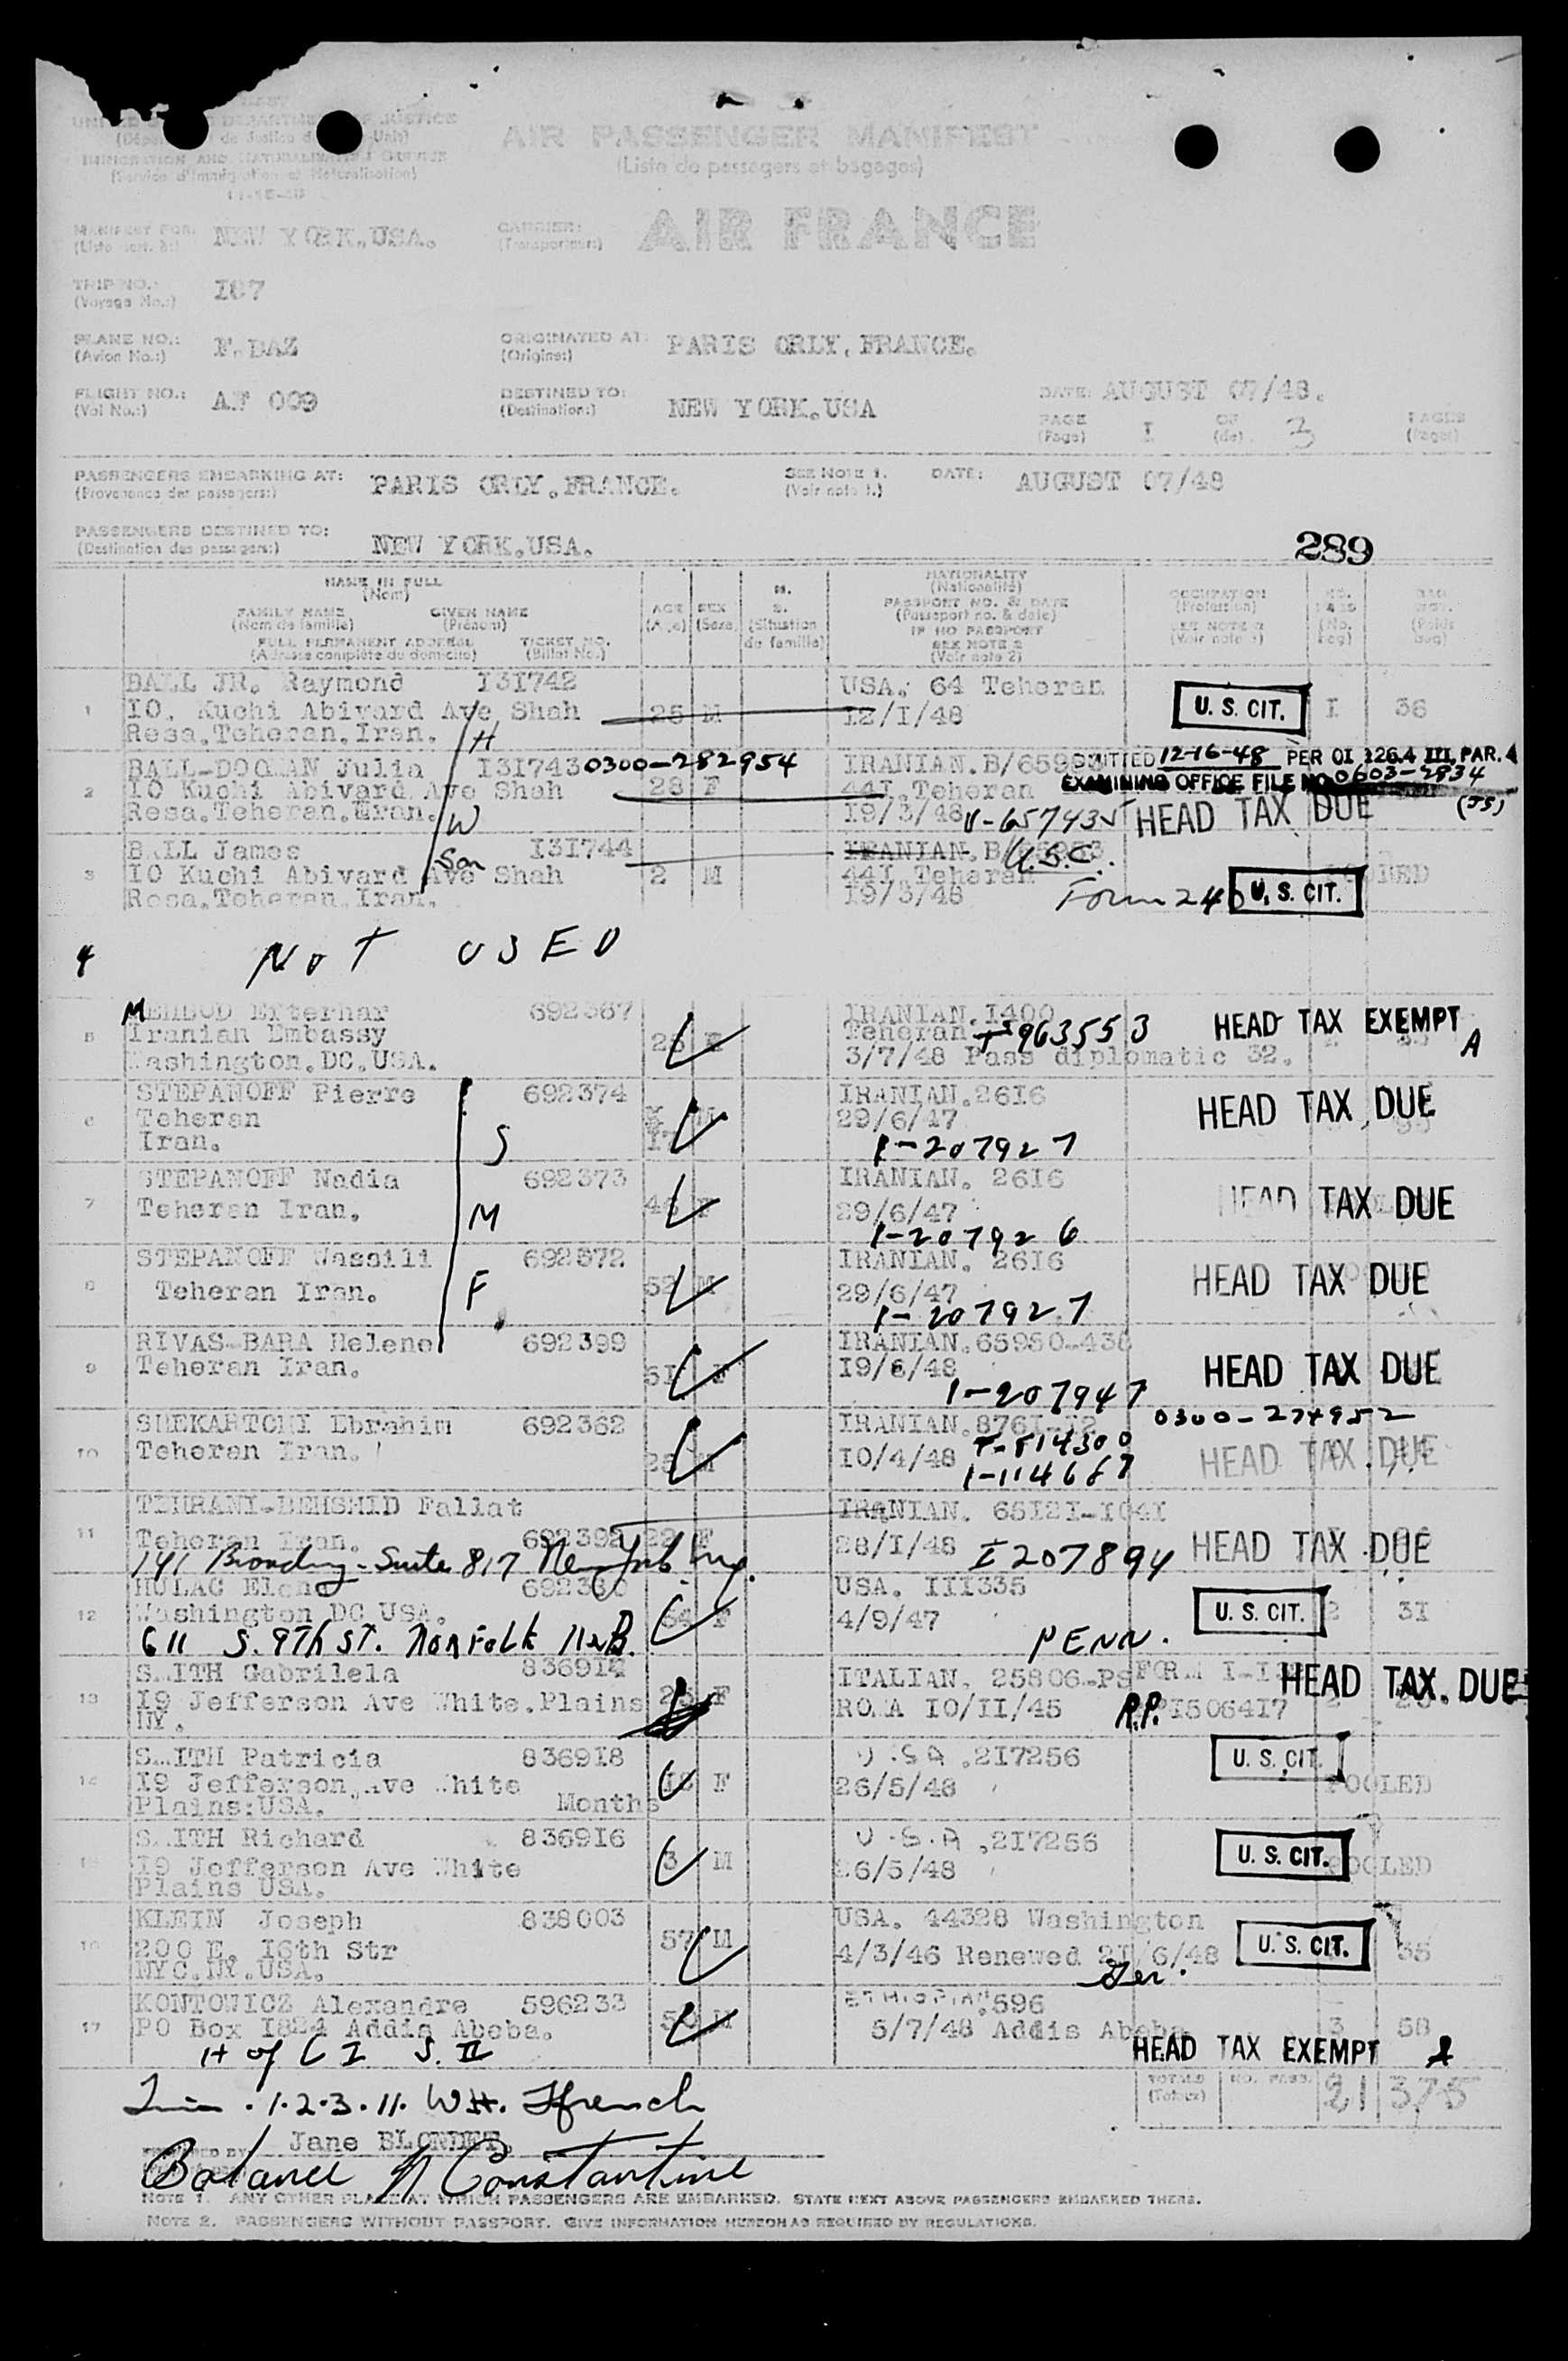 AIR PASSENGER MANIFEST
(Liste de passagers et bagages)
UNITED DEPARTMENT OF JUSTICE
de Justice
IMMIGRATION AND NATURALIZATION SERVICE
(Service d'Immigration et Naturalisation)
MANIFEST FOR: NEW YORK.USA. CARRIER: AIR FRANCE
(Transporteur:)
TRIP NO.: I67
(Voyage No.:)
PLANE NO.: F.BAZ ORIGINATED AT: PARIS ORLY.FRANCE.
(Avion No.:) (Origine:)
FLIGHT NO.: AF 009 DESTINED TO: NEW YORK.USA DATE: AUGUST 07/48.
(Vol No.:) (Destination:)
PAGE I OF 3 PAGES
(Page) (de) (Pages)
PASSENGERS EMBARKING AT: PARIS ORLY.FRANCE. SEE NOTE 1. DATE: AUGUST 07/48
(Provenance des passagers:) (Voir note 1.)
PASSENGERS DESTINED TO: NEW YORK.USA.
(Destination des passagers:)
289
NAME IN FULL
(Nom)
FAMILY NAME GIVEN NAME
(Nom de famille) (Prénom)
FULL PERMANENT ADDRESS TICKET NO.
(Adresse complète du domicile) (Billet No.:)
AGE SEX M. S.
(Age) (Sexe) (Situation de famille)
NATIONALITY
(Nationalité)
PASSPORT NO. & DATE
(Passeport no. & date)
IF NO PASSPORT
SEE NOTE 2
(Voir note 2)
OCCUPATION
(Profession)
1 BALL JR. Raymond I3I742 USA. 64 Teheran
IO. Kuchi Abivard Ave Shah 25 M I2/I/48 U. S. CIT. I 36
Resa.Teheran.Iran. H
2 BALL-DOGMAN Julia I3I743 0300-282954 IRANIAN.B/65953
ADMITTED 12-16-48 PER OI 126.4 III, PAR. 4
IO Kuchi Abivard Ave Shah 28 F 44I.Teheran EXAMINING OFFICE FILE NO 0603-2834
(JS)
Resa.Teheran.Iran. W I9/3/48 V-657435 HEAD TAX DUE
3 BALL James I3I744 IRANIAN.B U.S.C.
IO Kuchi Abivard Ave Shah Son 2 M 44I Teheran
Resa.Teheran.Iran. I9/3/48 Form 240 U. S. CIT.
4 NOT USED
5 MEHBOD Efterhar 692367 IRANIAN.I400 HEAD TAX EXEMPT A
Iranian Embassy Teheran T-963553
Washington.DC.USA. 3/7/48 Pass diplomatic 32.
6 STEPANOFF Pierre 692374 IRANIAN.26I6 HEAD TAX DUE
Teheran M 29/6/47
Iran. S I7 1-207927
7 STEPANOFF Nadia 692373 IRANIAN. 26I6 HEAD TAX DUE
Teheran Iran. M F 29/6/47
1-207926
8 STEPANOFF Wassili 692372 IRANIAN. 26I6 HEAD TAX DUE
Teheran Iran. F 52 M 29/6/47
1-207927
9 RIVAS-BARA Helene 692399 IRANIAN.65980-436
Teheran Iran. 5I F I9/6/48 HEAD TAX DUE
1-207947
10 SHEKARTCHI Ebrahim 692362 IRANIAN.876I-I2 0300-274952
Teheran Iran. M I0/4/48 HEAD TAX DUE
11 TEHRANI-BEHSHID Fallat IRANIAN. 65I2I-I04I
Teheran Iran. 692392 22 F 28/I/48 I 207894 HEAD TAX DUE
141 Broadway - Suite 817 New York, N.Y.
12 HULAC Elena USA. III335
Washington DC USA. 54 F 4/9/47 U. S. CIT. 2 3I
611 S. 9Th ST. NORFOLK NEB. PENN.
13 SMITH Gabrilela ITALIAN. 25806-PS FORM I-I HEAD TAX DUE
I9 Jefferson Ave White.Plains F ROMA I0/II/45 R.P. I506417
NY.
14 SMITH Patricia 8369I8 U.S.A .2I7256 U. S. CIT.
I9 Jefferson.Ave White I8 F 26/5/48 POOLED
Plains:USA. Months
15 SMITH Richard 8369I6 U.S.A .2I7256 U. S. CIT.
I9 Jefferson Ave White 3 M 26/5/48 POOLED
Plains USA.
16 KLEIN Joseph 838003 USA. 44328 Washington
200 E. I6th Str 57 M 4/3/46 Renewed 2I/6/48 U. S. CIT. 35
NYC.NY.USA. Ger.
17 KONTOWICZ Alexandre 596233 ETHIOPIAN 596
PO Box I824 Addis Abeba. M 5/7/48 Addis Abeba 3 58
HEAD TAX EXEMPT
TOTALS NO. PASS. 21 375
(Totaux)
1.2.3.11. W.H. Ffrench
Jane BLONDET
Balance Constantine
NOTE 1. ANY OTHER PLACE AT WHICH PASSENGERS ARE EMBARKED. STATE NEXT ABOVE PASSENGERS EMBARKED THERE.
NOTE 2. PASSENGERS WITHOUT PASSPORT. GIVE INFORMATION HEREON AS REQUIRED BY REGULATIONS.